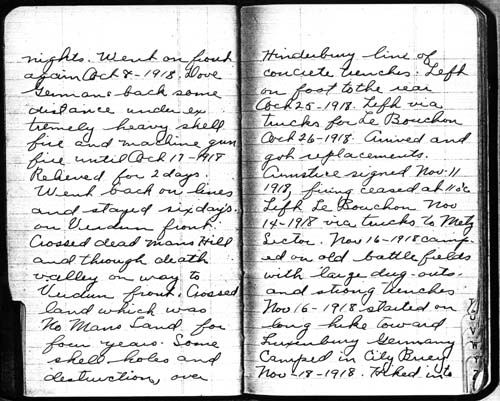 nights. Went on front
again Oct 8-1918. Dove
Germans back some
distance under ex
tremely heavy shell
fire and machine gun
fire until Oct 17-1918
Relieved for 2 days.
Went back on lines
and stayed six days.
on Verdun front.
Crossed dead mans Hill
and through death
valley on way to
Verdun front. Crossed
land which was
No Mans Land, for
four years. Some
shell holes and
destruction, over
Hinderburg line of
concrete trenches. Left
on foot to the rear
Oct 25-1918. Left via
trucks for Le Bouchon
Oct 26-1918. Arrived and
got replacements.
Armistice signed Nov. 11
1918, firing ceased at 11 oc
Left Le Bouchon Nov
14-1918 via trucks to Metz
Sector. Nov 16-1918 camp-
ed on old battle fields
with large dug-outs
and strong trenches
Nov 16-1918 started on
long hike toward
Luxenburg Germany
Camped in City Buey
Nov-18-1918. Hiked into